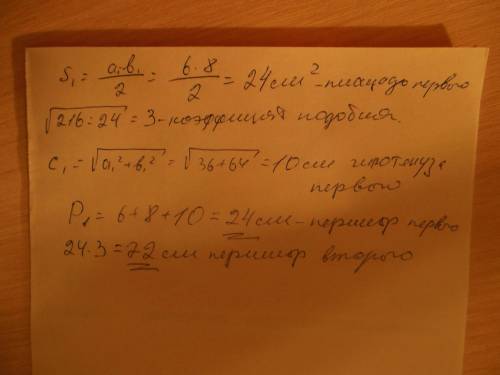 S₁ = a₁·b₁/2 = 6·8/2 = 24 см² - площадь первого
√216:24 = 3 - коэффициент подобия.
c₁ = √a₁²+b₁² = √36+64 = 10 см гипотенуза
первого
P₁ = 6+8+10 = 24 см - периметр первого
24·3 = 72 см периметр второго